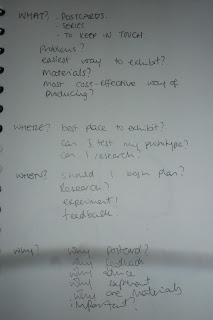 WHAT? - POSTCARDS.
- SERIES
- TO KEEP IN TOUCH
Problems?
easiest way to exhibit?
Materials?
most cost-effective way of
producing?
WHERE? best place to exhibit?
can I test my prototype?
can I research?
WHEN? should I begin plan?
Research?
experiment!
feedback.
Why? why postcard?
why feedback
why advice
why experiment
why are materials
important?